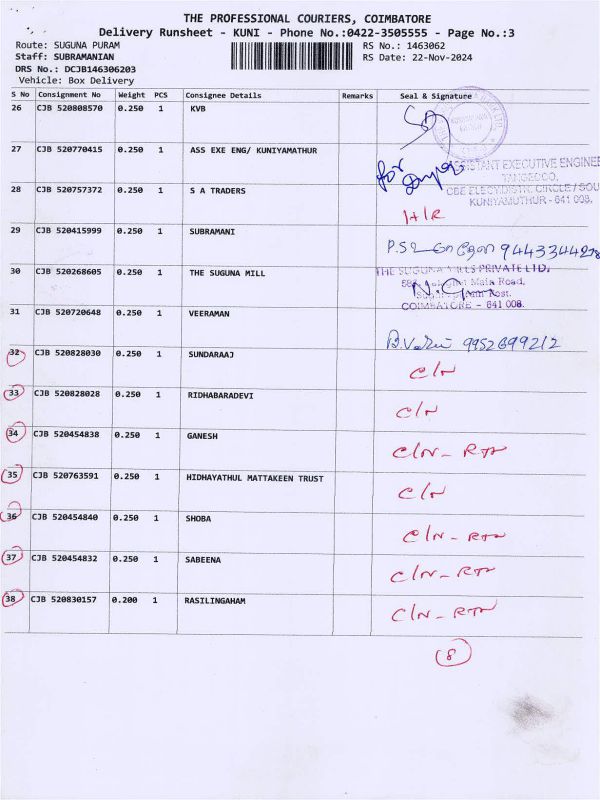 THE PROFESSIONAL COURIERS, COIMBATORE
Delivery Runsheet - KUNI - Phone No.:0422-3505555 - Page No.:3
Route: SUGUNA PURAM
RS No.: 1463062
Staff: SUBRAMANIAN
RS Date: 22-Nov-2024
DRS No.: DCJB146306203
Vehicle: Box Delivery
S No Consignment No Weight PCS Consignee Details Remarks Seal & Signature
26 CJB 520808570 0.250 1 KVB
27 CJB 520770415 0.250 1 ASS EXE ENG/ KUNIYAMATHUR
for
ASSISTANT EXECUTIVE ENGINEE
TANGEDCO,
CBE ELECY.DISTN. CIRCLE / SOU
KUNIYAMUTHUR - 641 008.
28 CJB 520757372 0.250 1 S A TRADERS
H/R
29 CJB 520415999 0.250 1 SUBRAMANI
9443344278
30 CJB 520268605 0.250 1 THE SUGUNA MILL
THE SUGUNA MILLS PRIVATE LTD.
Main Road,
Post.
COIMBATORE - 641 008.
31 CJB 520720648 0.250 1 VEERAMAN
9952699212
32 CJB 520828030 0.250 1 SUNDARAAJ C/N
33 CJB 520828028 0.250 1 RIDHABARADEVI C/N
34 CJB 520454838 0.250 1 GANESH C/N - RTN
35 CJB 520763591 0.250 1 HIDHAYATHUL MATTAKEEN TRUST C/N
36 CJB 520454840 0.250 1 SHOBA C/N - RTN
37 CJB 520454832 0.250 1 SABEENA C/N - RTN
38 CJB 520830157 0.200 1 RASILINGAHAM C/N - RTN
8